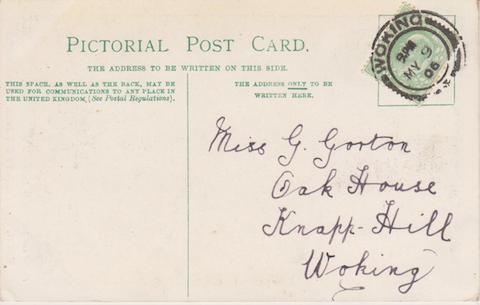 PICTORIAL POST CARD.
THE ADDRESS TO BE WRITTEN ON THIS SIDE.
THIS SPACE, AS WELL AS THE BACK, MAY BE
USED FOR COMMUNICATIONS TO ANY PLACE IN
THE UNITED KINGDOM, (See Postal Regulations).
THE ADDRESS ONLY TO BE
WRITTEN HERE.
WOKING
MY 9
06
Miss G. Gorton
Oak House
Knapp-Hill
Woking